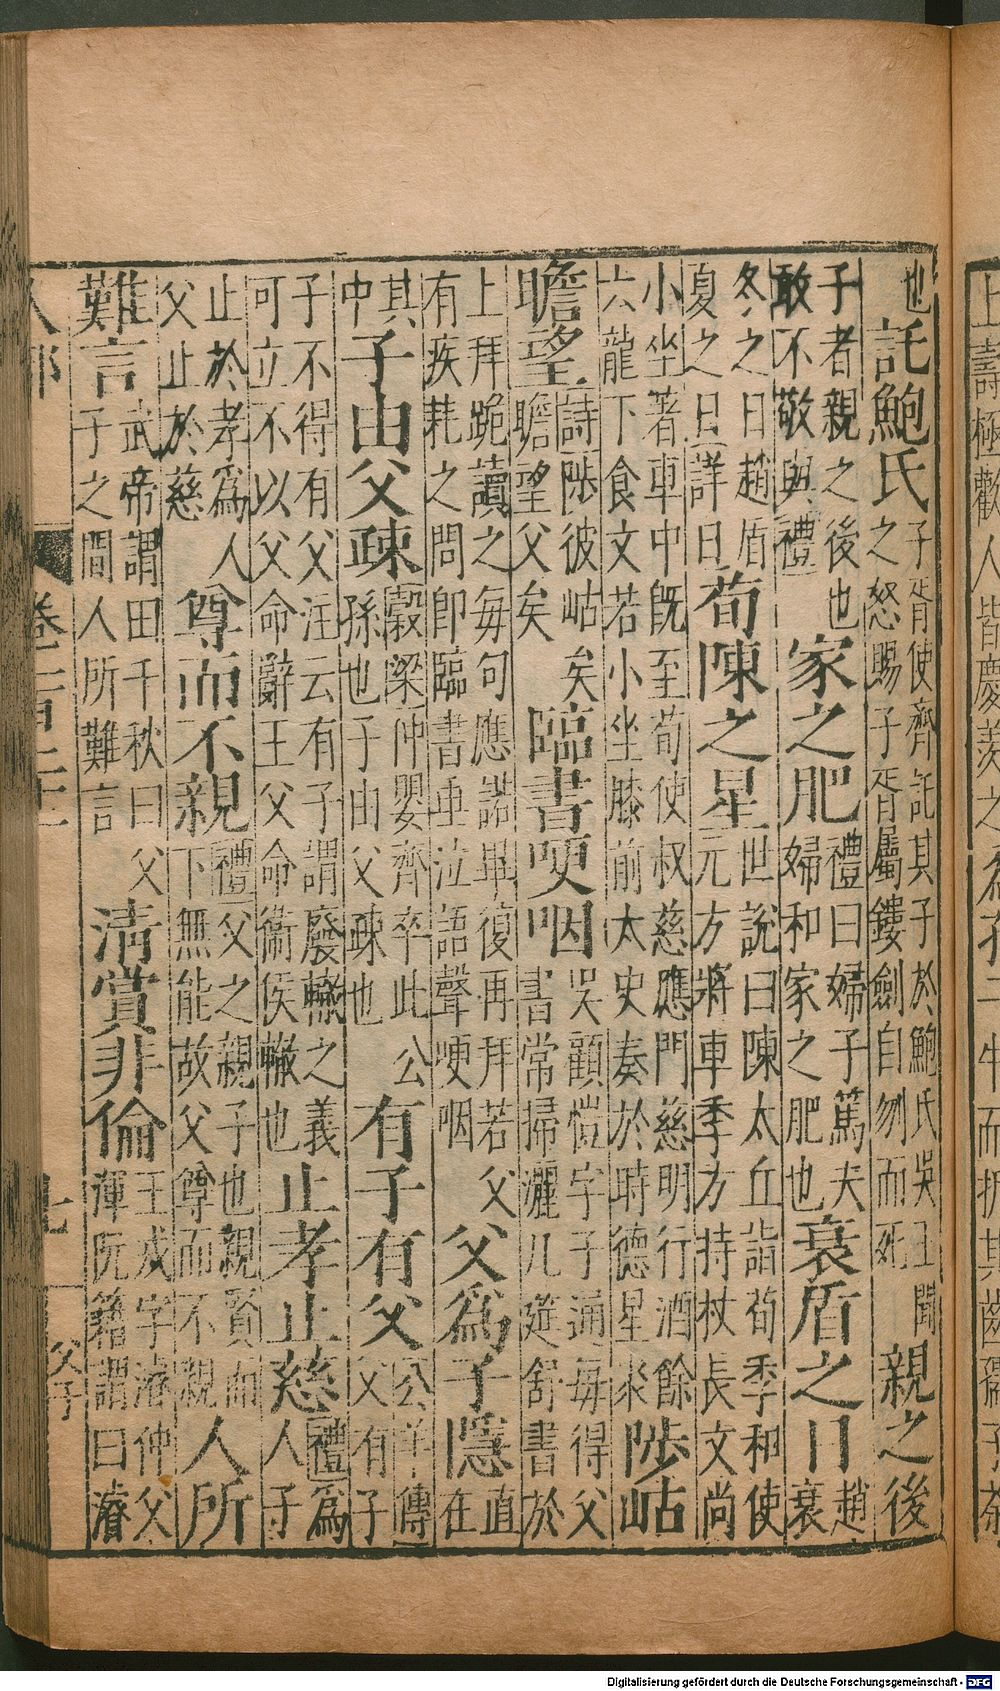 也託鮑氏子胥使齊託其子於鮑氏吳王聞之怒賜子胥屬鏤劍自刎而死親之後
子者親之後也敢不敬與禮家之肥禮曰婦子篤夫婦和家之肥也衰盾之日趙衰
冬之日趙盾夏之日詳日荀陳之星世說曰陳太丘詣荀季和使元方將車季方持杖長文尚
小坐著車中旣至荀使叔慈應門慈明行酒餘六龍下食文若小坐膝前太史奏於時德星聚陟岵
瞻望詩陟彼岵矣瞻望父矣臨書哽咽吳顧愷字子通每得父書常掃灑几筵舒書於
上拜跪讀之每句應諾畢復再拜若父有疾耗之問卽臨書垂泣語聲哽咽父爲子隱直在
其中子由父疎穀梁仲嬰齊卒此公孫也子由父疎也有子有父公羊傳父有子
子不得有父注云有子謂廢轍之義可立不以父命辭王父命衛侯轍也止孝止慈禮爲人子
止於孝爲人父止於慈尊而不親禮父之親子也親賢而下無能故父尊而不親人所
難言武帝謂田千秋曰父子之間人所難言清賞非倫王戎字濬仲父渾阮籍謂曰濬
人部 卷二百 七 父子